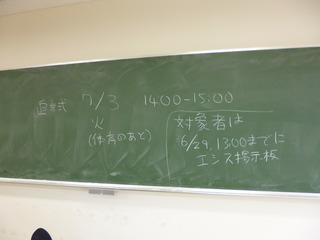 追悼式 7/3 14:00-15:00
火
(体育のあと)
対象者は
6/29, 13:00までに
エンス掲示板